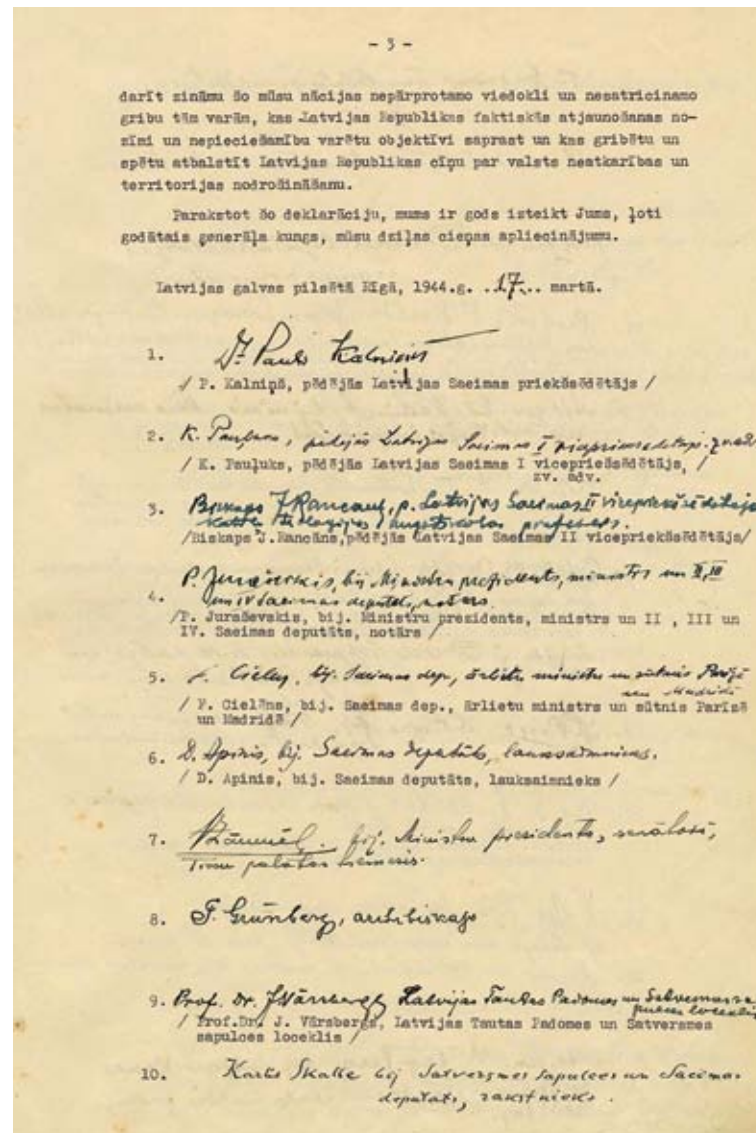 - 3 -
darīt zināmu šo mūsu nācijas nepārprotamo viedokli un nesatricinamo
gribu tām varām, kas Latvijas Republikas faktiskās atjaunošanas no-
zīmi un nepieciešamību varētu objektīvi saprast un kas gribētu un
spētu atbalstīt Latvijas Republikas cīņu par valsts neatkarības un
territorijas nodrošināšanu.
Parakstot šo deklarāciju, mums ir gods izteikt Jums, ļoti
godātais ģenerāļa kungs, mūsu dziļas cieņas apliecinājumu.
Latvijas galvas pilsētā Rīgā, 1944.g. ..17... martā.
1. Dr. Pauls Kalniņš
/ P. Kalniņš, pēdējās Latvijas Saeimas priekšsēdētājs /
2. K. Pauļuks, pēdējās Latvijas Saeimas I
/ K. Pauļuks, pēdējās Latvijas Saeimas I vicepriekšsēdētājs, /
zv. adv.
3. Biskaps J. Rancans, p. Latvijas Saeimas II vicepriekšsēdētājs
/Biskaps J.Rancāns,pēdējās Latvijas Saeimas II vicepriekšsēdētājs/
P. Juraševskis, bij. Ministru prezidents, ministrs un II, III
4. un IV Saeimas deputāts, notārs
/P. Juraševskis, bij. Ministru prezidents, ministrs un II , III un
IV. Saeimas deputāts, notārs /
5. F. Cielēns, bij. Saeimas dep., ārlietu ministrs un sūtnis Parīzē
un Madridē
/ F. Cielēns, bij. Saeimas dep., ārlietu ministrs un sūtnis Parīzē
un Madridē /
6. D. Apinis, bij. Saeimas deputāts, lauksaimnieks.
/ D. Apinis, bij. Saeimas deputāts, lauksaimnieks /
7. bij. Ministru prezidents, senātors,
Tiesu palātas
8. T. Grünberg, archibiskaps
9. Prof. Dr. J Vārsbergs Latvijas Tautas Padomes un Satversmes sa-
pulces loceklis
/ Prof.Dr. J. Vārsbergs, Latvijas Tautas Padomes un Satversmes
sapulces loceklis /
10. Kārlis Skalbe bij Satversmes sapulces un Saeimas
deputats, rakstnieks.